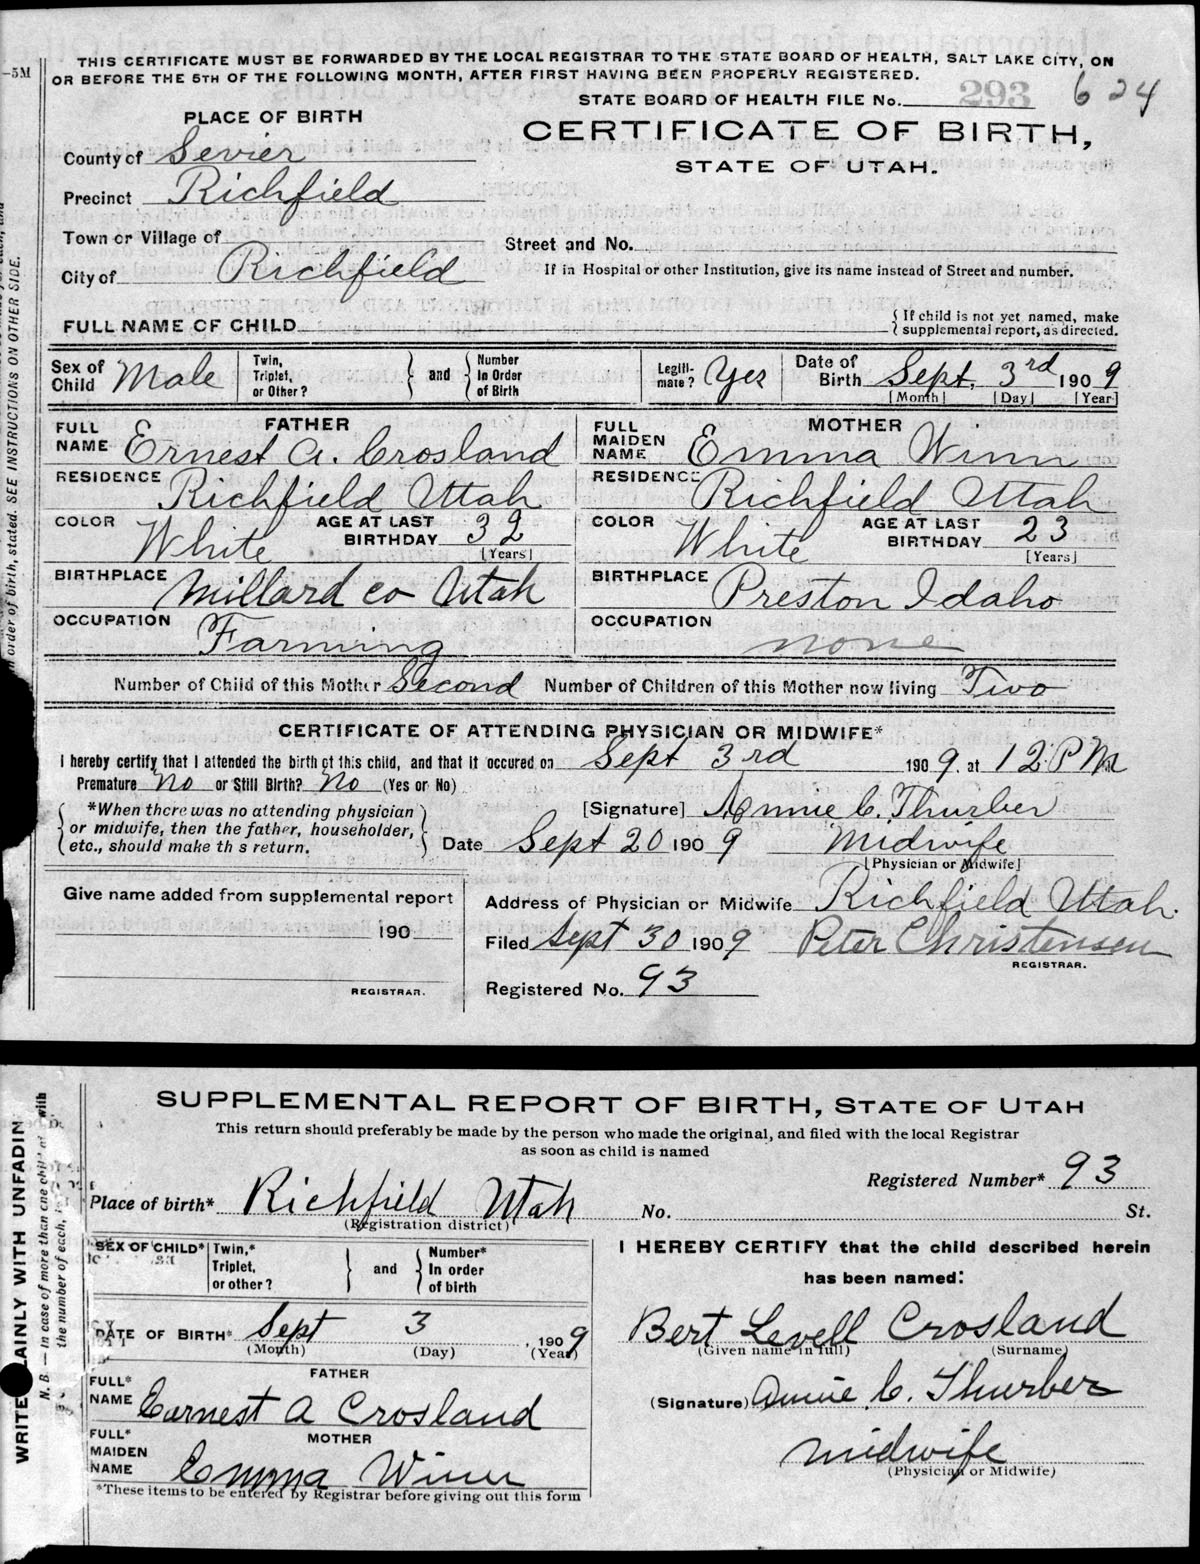 THIS CERTIFICATE MUST BE FORWARDED BY THE LOCAL REGISTRAR TO THE STATE BOARD OF HEALTH, SALT LAKE CITY, ON
OR BEFORE THE 5TH OF THE FOLLOWING MONTH, AFTER FIRST HAVING BEEN PROPERLY REGISTERED.
—5M
STATE BOARD OF HEALTH FILE No. 293 624
PLACE OF BIRTH
CERTIFICATE OF BIRTH,
STATE OF UTAH.
County of Sevier
Precinct Richfield
Town or Village of
Street and No.
City of Richfield
If in Hospital or other Institution, give its name instead of Street and number.
FULL NAME OF CHILD
{ If child is not yet named, make
supplemental report, as directed.
Sex of Child Male
Twin, Triplet, or Other?
and
Number In Order of Birth
Legiti-mate? Yes
Date of Birth Sept. 3rd 1909
[Month] [Day] [Year]
FATHER
FULL NAME Ernest A. Crosland
MOTHER
FULL MAIDEN NAME Emma Winn
RESIDENCE Richfield Utah
RESIDENCE Richfield Utah
COLOR White AGE AT LAST BIRTHDAY 32 [Years]
COLOR White AGE AT LAST BIRTHDAY 23 [Years]
BIRTHPLACE Millard co Utah
BIRTHPLACE Preston Idaho
OCCUPATION Farming
OCCUPATION none
Number of Child of this Mother Second Number of Children of this Mother now living Two
CERTIFICATE OF ATTENDING PHYSICIAN OR MIDWIFE*
I hereby certify that I attended the birth of this child, and that it occured on Sept 3rd 1909. at 12 P M
Premature No or Still Birth? No (Yes or No)
*When there was no attending physician
or midwife, then the father, householder,
etc., should make th s return.
[Signature] Annie C. Thurber
Date Sept 20 1909 Midwife
[Physician or Midwife]
Give name added from supplemental report
190
REGISTRAR.
Address of Physician or Midwife Richfield Utah.
Filed Sept 30 1909 Peter Christensen
REGISTRAR.
Registered No. 93
n order of birth, stated. SEE INSTRUCTIONS ON OTHER SIDE.
SUPPLEMENTAL REPORT OF BIRTH, STATE OF UTAH
This return should preferably be made by the person who made the original, and filed with the local Registrar
as soon as child is named
Registered Number* 93
Place of birth* Richfield Utah No. St.
(Registration district)
SEX OF CHILD*
Twin,* Triplet, or other?
and
Number* In order of birth
DATE OF BIRTH* Sept 3, 1909
(Month) (Day) (Year)
FATHER
FULL* NAME Earnest A Crosland
MOTHER
FULL* MAIDEN NAME Emma Winn
*These items to be entered by Registrar before giving out this form
I HEREBY CERTIFY that the child described herein
has been named:
Bert Levell Crosland
(Given name in full) (Surname)
(Signature) Annie C. Thurber
midwife
(Physician or Midwife)
WRITE LAINLY WITH UNFADIN
N. B.—In case of more than one child at with
the number of each,